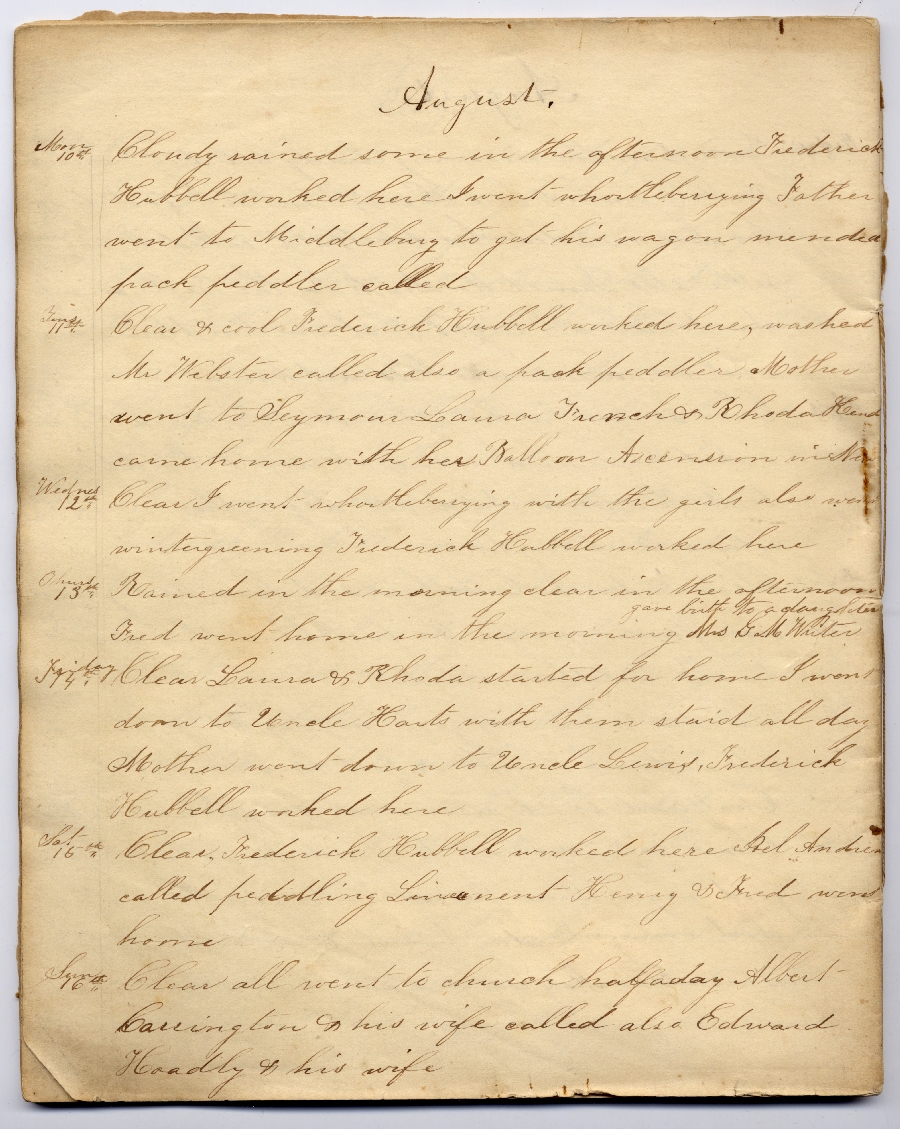 August.
Mon 10th Cloudy rained some in the afternoon Frederick
Hubbell worked here I went whortleberrying Father
went to Middlebury to get his wagon mended
pack peddler called
11th Clear & cool Frederick Hubbell worked here, washed
Mr Webster called also a pack peddler, Mother
went to Seymour Laura French & Rhoda
came home with her Balloon Ascension in
Wednes 12th Clear I went whortleberrying with the girls also went
wintergreening Frederick Hubbell worked here
Thurs 13th Rained in the morning clear in the afternoon
gave birth to a daughter
Fred went home in the morning Mrs G M
Friday 14th Clear Laura & Rhoda started for home I went
down to Uncle Harts with them staid all day
Mother went down to Uncle Lewis, Frederick
Hubbell worked here
Sat 15th Clear, Frederick Hubbell worked here
called peddling Linament Henry & Fred went
home
Sun 16th Clear all went to church halfaday Albert
Carrington & his wife called also Edward
Hoadly & his wife